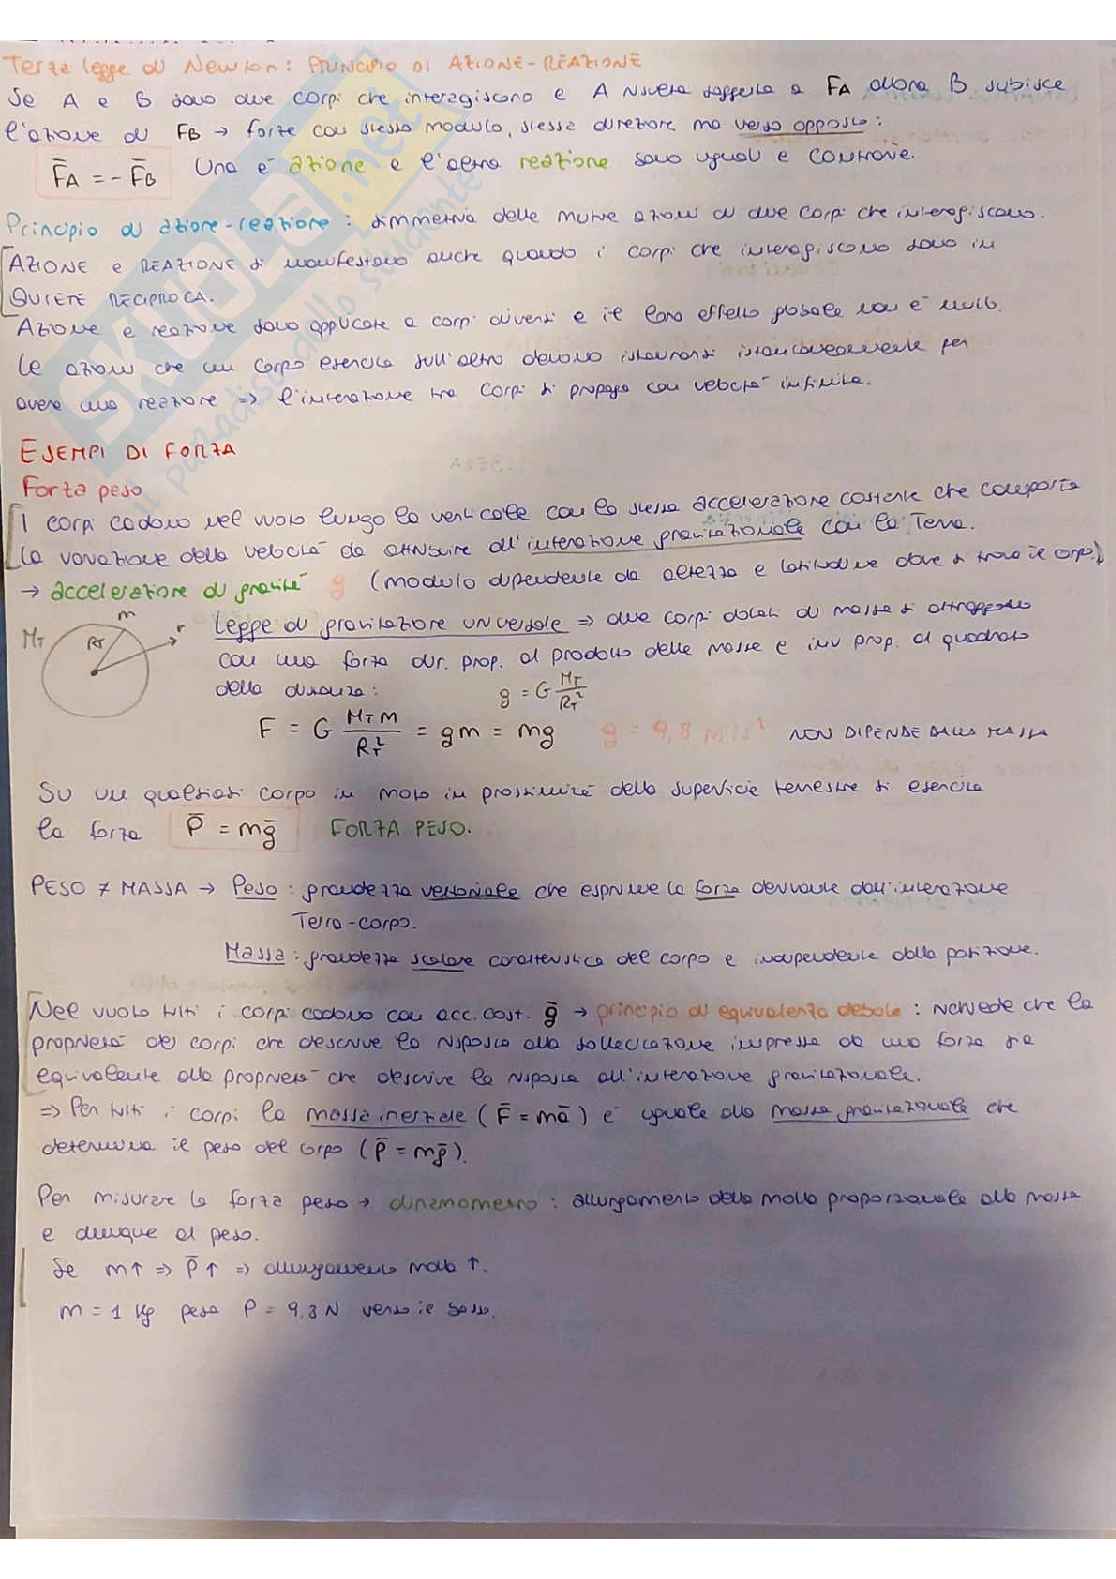 Terza legge di Newton: PRINCIPIO DI AZIONE-REAZIONE
Se A e B sono due corpi che interagiscono e A risulta soggetto a FA allora B subisce
l'azione di FB → forze con stesso modulo, stessa direzione ma verso opposto:
F̄A = - F̄B Una è azione e l'altra reazione sono uguali e contrarie.
Principio di azione-reazione: simmetria delle mutue azioni di due corpi che interagiscono.
AZIONE e REAZIONE si manifestano anche quando i corpi che interagiscono sono in
QUIETE RECIPROCA.
Azione e reazione sono applicate a corpi diversi e il loro effetto globale non è nullo.
Le azioni che un corpo esercita sull'altro devono instaurarsi istantaneamente per
avere una reazione => l'interazione tra corpi si propaga con velocità infinita.
ESEMPI DI FORZA
Forza peso
I corpi cadono nel vuoto lungo la verticale con la stessa accelerazione costante che comporta
la variazione della velocità da attribuire all'interazione gravitazionale con la Terra.
→ accelerazione di gravità g (modulo dipendente da altezza e latitudine dove si trova il corpo)
MT RT m r
Legge di gravitazione universale => due corpi dotati di massa si attraggono
con una forza dir. prop. al prodotto delle masse e inv prop. al quadrato
della distanza: g = G MT/RT²
F = G MT m/RT² = gm = mg g = 9,8 m/s² NON DIPENDE DALLA MASSA
Su un qualsiasi corpo in moto in prossimità della superficie terrestre si esercita
la forza P̄ = mḡ FORZA PESO.
PESO ≠ MASSA → Peso: grandezza vettoriale che esprime la forza derivante dall'interazione
Terra-corpo.
Massa: grandezza scalare caratteristica del corpo e indipendente dalla posizione.
Nel vuoto tutti i corpi cadono con acc. cost. ḡ → principio di equivalenza debole: richiede che la
proprietà dei corpi che descrive la risposta alla sollecitazione impressa da una forza sia
equivalente alla proprietà che descrive la risposta all'interazione gravitazionale.
=> Per tutti i corpi la massa inerziale (F̄ = mā) è uguale alla massa gravitazionale che
determina il peso del corpo (P̄ = mḡ).
Per misurare la forza peso → dinamometro: allungamento della molla proporzionale alla massa
e dunque al peso.
Se m↑ => P̄↑ => allungamento molla ↑.
m = 1 kg pesa P = 9.8 N verso il basso.
skuola.net
il paradiso dello studente